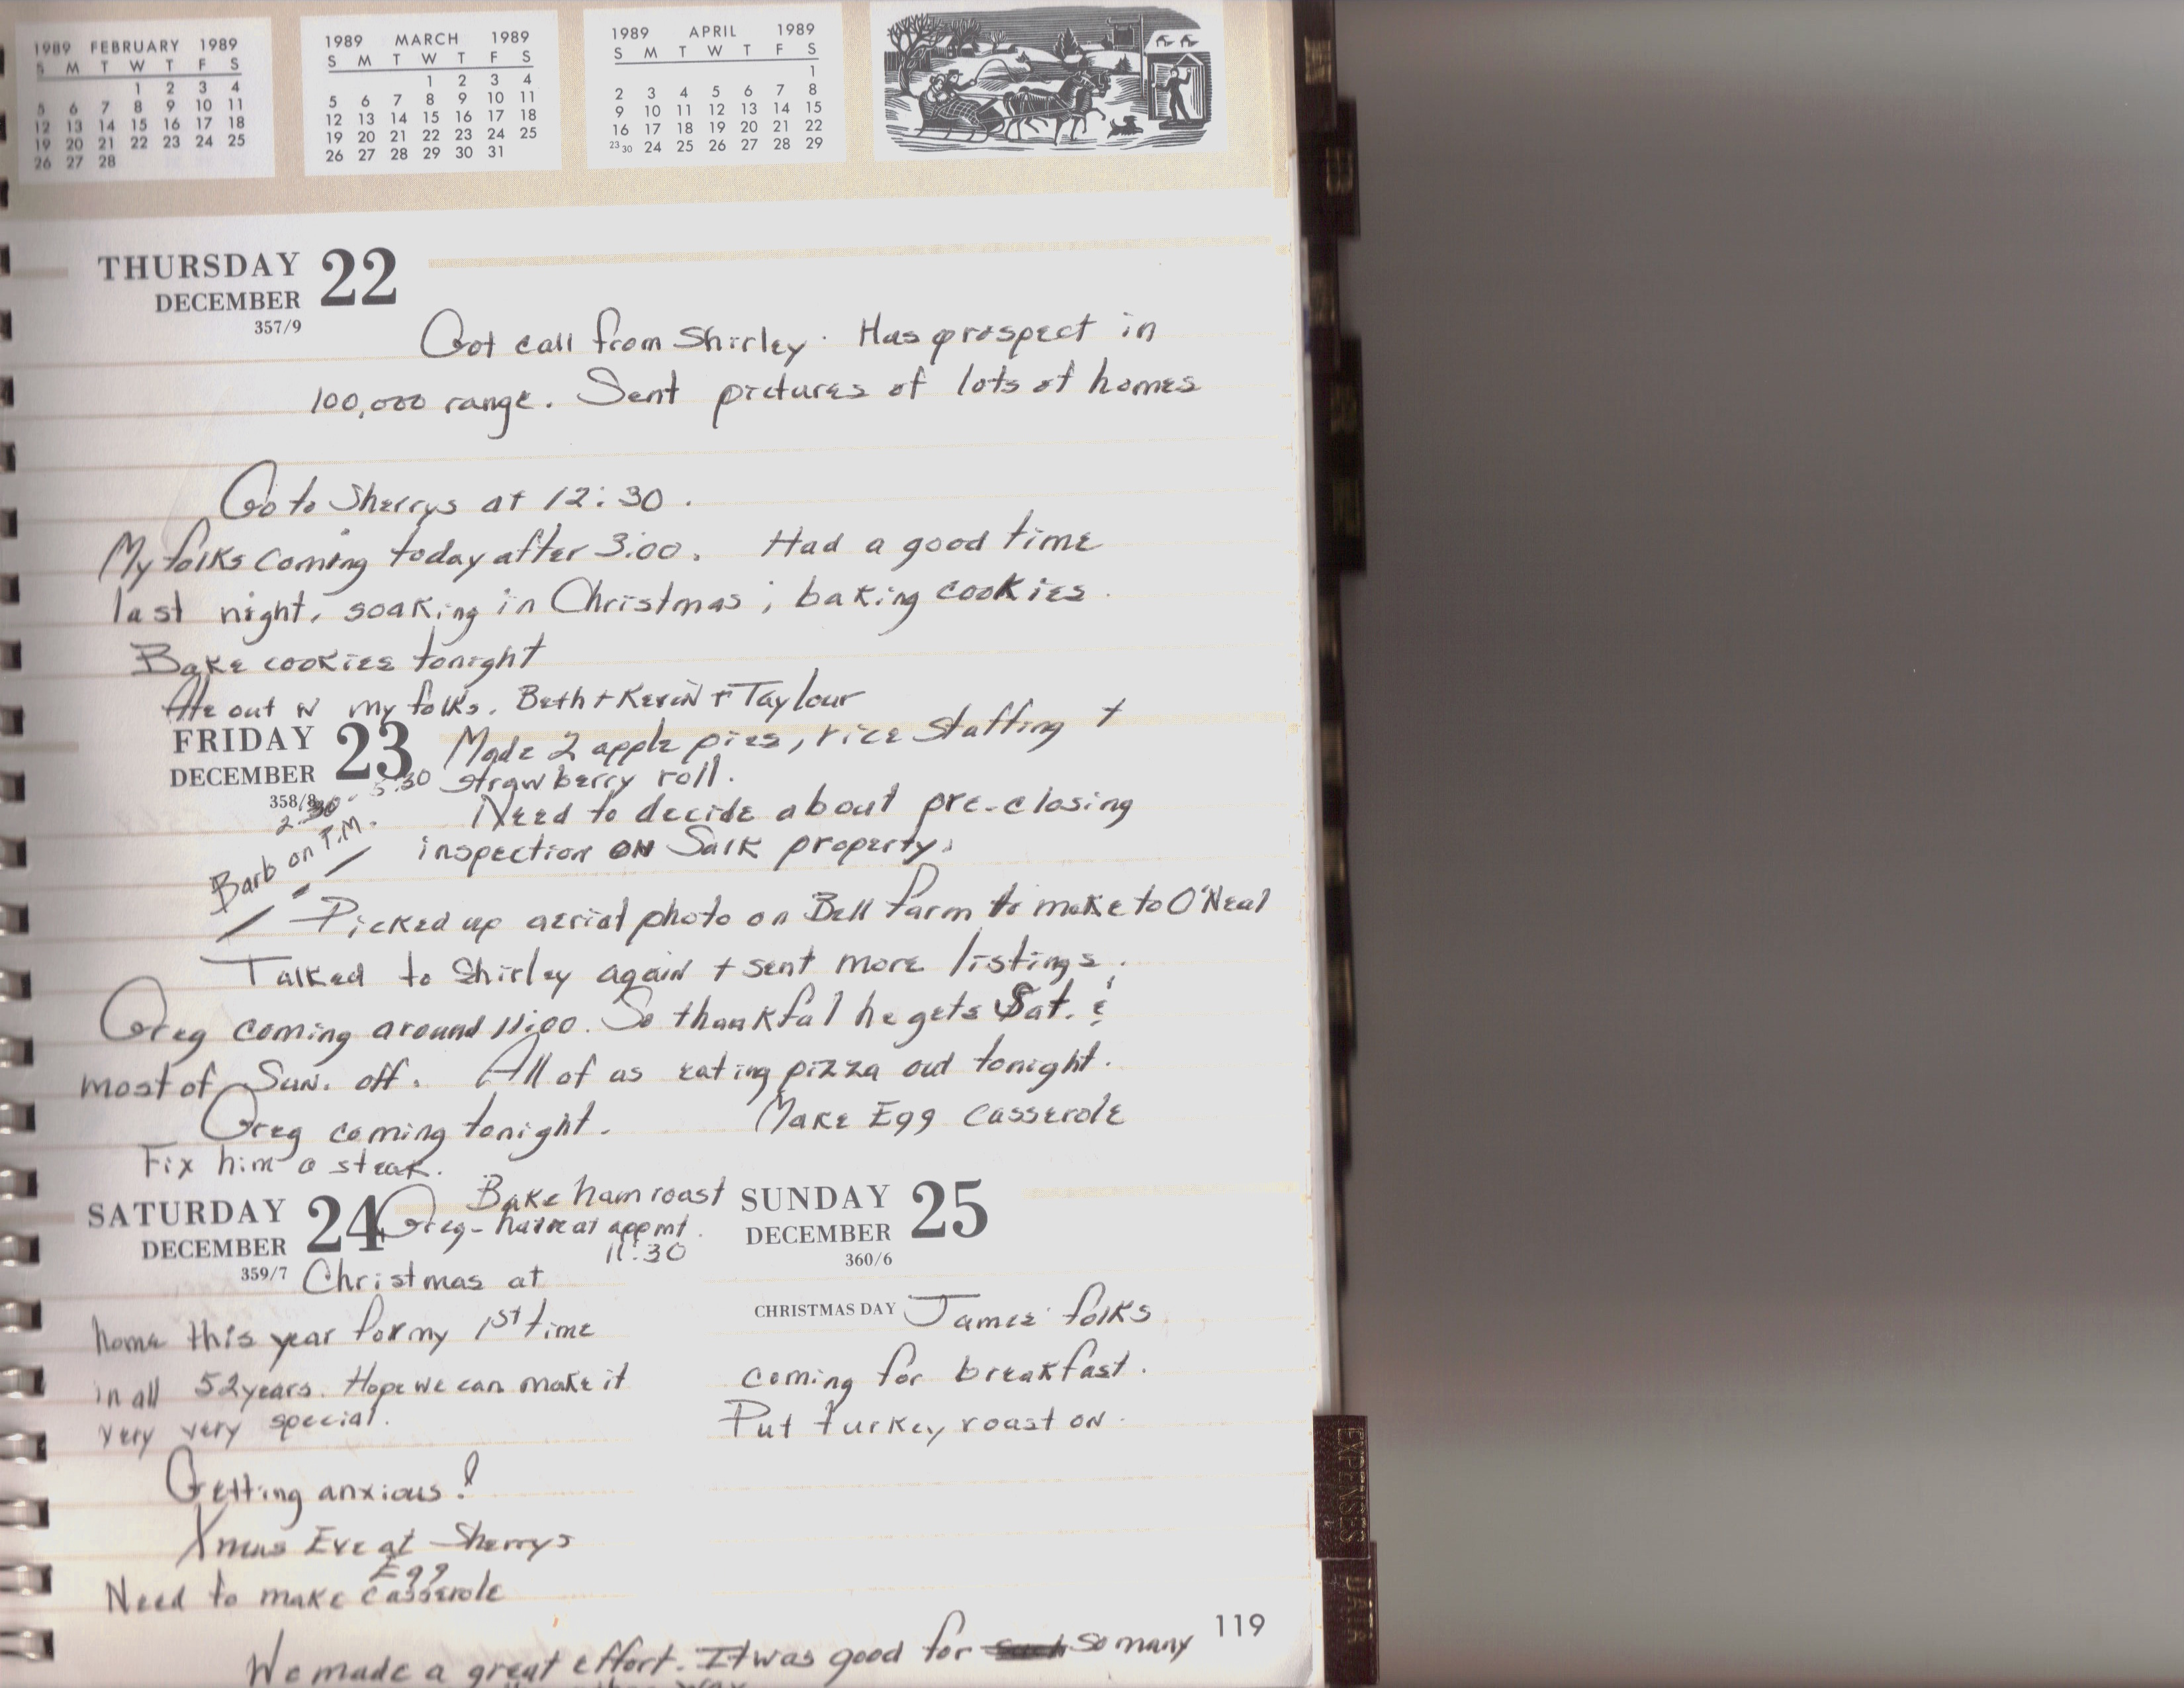 1989 FEBRUARY 1989
S M T W T F S
1 2 3 4
5 6 7 8 9 10 11
12 13 14 15 16 17 18
19 20 21 22 23 24 25
26 27 28
1989 MARCH 1989
S M T W T F S
1 2 3 4
5 6 7 8 9 10 11
12 13 14 15 16 17 18
19 20 21 22 23 24 25
26 27 28 29 30 31
1989 APRIL 1989
S M T W T F S
1
2 3 4 5 6 7 8
9 10 11 12 13 14 15
16 17 18 19 20 21 22
23 30 24 25 26 27 28 29
THURSDAY 22
DECEMBER
357/9
Got call from Shirley. Has prospect in
100,000 range. Sent pictures of lots of homes
Go to Sherrys at 12:30.
My folks coming today after 3:00. Had a good time
last night, soaking in Christmas ; baking cookies.
Bake cookies tonight
Ate out w my folks. Beth + Kevin + Taylour
FRIDAY 23
DECEMBER
358/8
Made 2 apple pies, rice stuffing +
strawberry roll.
2:30 - 5:30
Barb on P.M.
Need to decide about pre-closing
inspection on Salk property.
Picked up aerial photo on Bell farm to make to O'Neal
Talked to Shirley again + sent more listings.
Greg coming around 11:00. So thankful he gets Sat. &
most of Sun. off. All of us eating pizza out tonight.
Greg coming tonight. Make Egg Casserole
Fix him a steak.
SATURDAY 24
DECEMBER
359/7
Bake ham roast
Greg - haircut appmt.
11:30
Christmas at
home this year for my 1st time
in all 52 years. Hope we can make it
very very special.
Getting anxious!
Xmas Eve at Sherrys
Egg
Need to make casserole
SUNDAY 25
DECEMBER
360/6
CHRISTMAS DAY James' folks
coming for breakfast.
Put turkey roast on.
119
We made a great effort. It was good for so many
EXPENSES
DATA